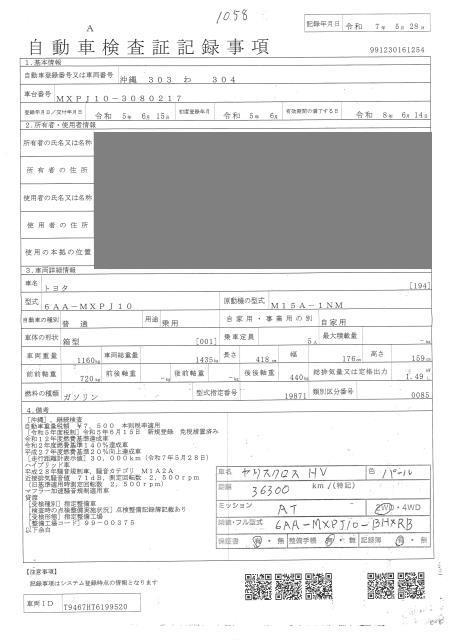 1058
A
記録年月日 令和 7年 5月 28日
自動車検査証記録事項
991230161254
1.基本情報
自動車登録番号又は車両番号 沖縄 303 わ 304
車台番号 MXPJ10-3080217
登録年月日／交付年月日 令和 5年 6月 15日 初度登録年月 令和 5年 6月 有効期間の満了する日 令和 8年 6月 14日
2.所有者・使用者情報
所有者の氏名又は名称
所有者の住所
使用者の氏名又は名称
使用者の住所
使用の本拠の位置
3.車両詳細情報
車名 トヨタ [194]
型式 6AA-MXPJ10 原動機の型式 M15A-1NM
自動車の種別 普通 用途 乗用 自家用・事業用の別 自家用
車体の形状 箱型 [001] 乗車定員 5人 最大積載量 -kg
車両重量 1160kg 車両総重量 1435kg 長さ 418cm 幅 176cm 高さ 159cm
前前軸重 720kg 前後軸重 -kg 後前軸重 -kg 後後軸重 440kg 総排気量又は定格出力 1.49
燃料の種類 ガソリン 型式指定番号 19871 類別区分番号 0085
4.備考
[沖縄]，継続検査
自動車重量税額 ￥7,500 本則税率適用
[令和5年度税制]令和5年6月15日 新規登録 免税措置済み
令和12年度燃費基準達成車
令和2年度燃費基準140%達成車
平成27年度燃費基準20%向上達成車
[走行距離計表示値] 30,000km (令和7年5月28日)
ハイブリッド車
平成28年騒音規制車，騒音カテゴリ M1A2A
近接排気騒音値 71dB，測定回転数 2,500rpm
(旧基準適用時測定回転数 2,500rpm)
マフラー加速騒音規制適用車
保安
[受検種別]指定整備車
[検査時の点検整備実施状況]点検整備記録簿記載あり
[受検形態]指定整備工場
[整備工場コード]99-00375
以下余白
車名 ヤリスクロス HV 色 パール
距離 36300 km／(特記)
ミッション AT 2WD・4WD
類別・フル型式 6AA-MXPJ10-BHXRB
保証書 有・無 整備手帳 有・無 記録簿 有・無
【注意事項】
記録事項はシステム登録時点の情報となります
車両ID T9467HT6199520